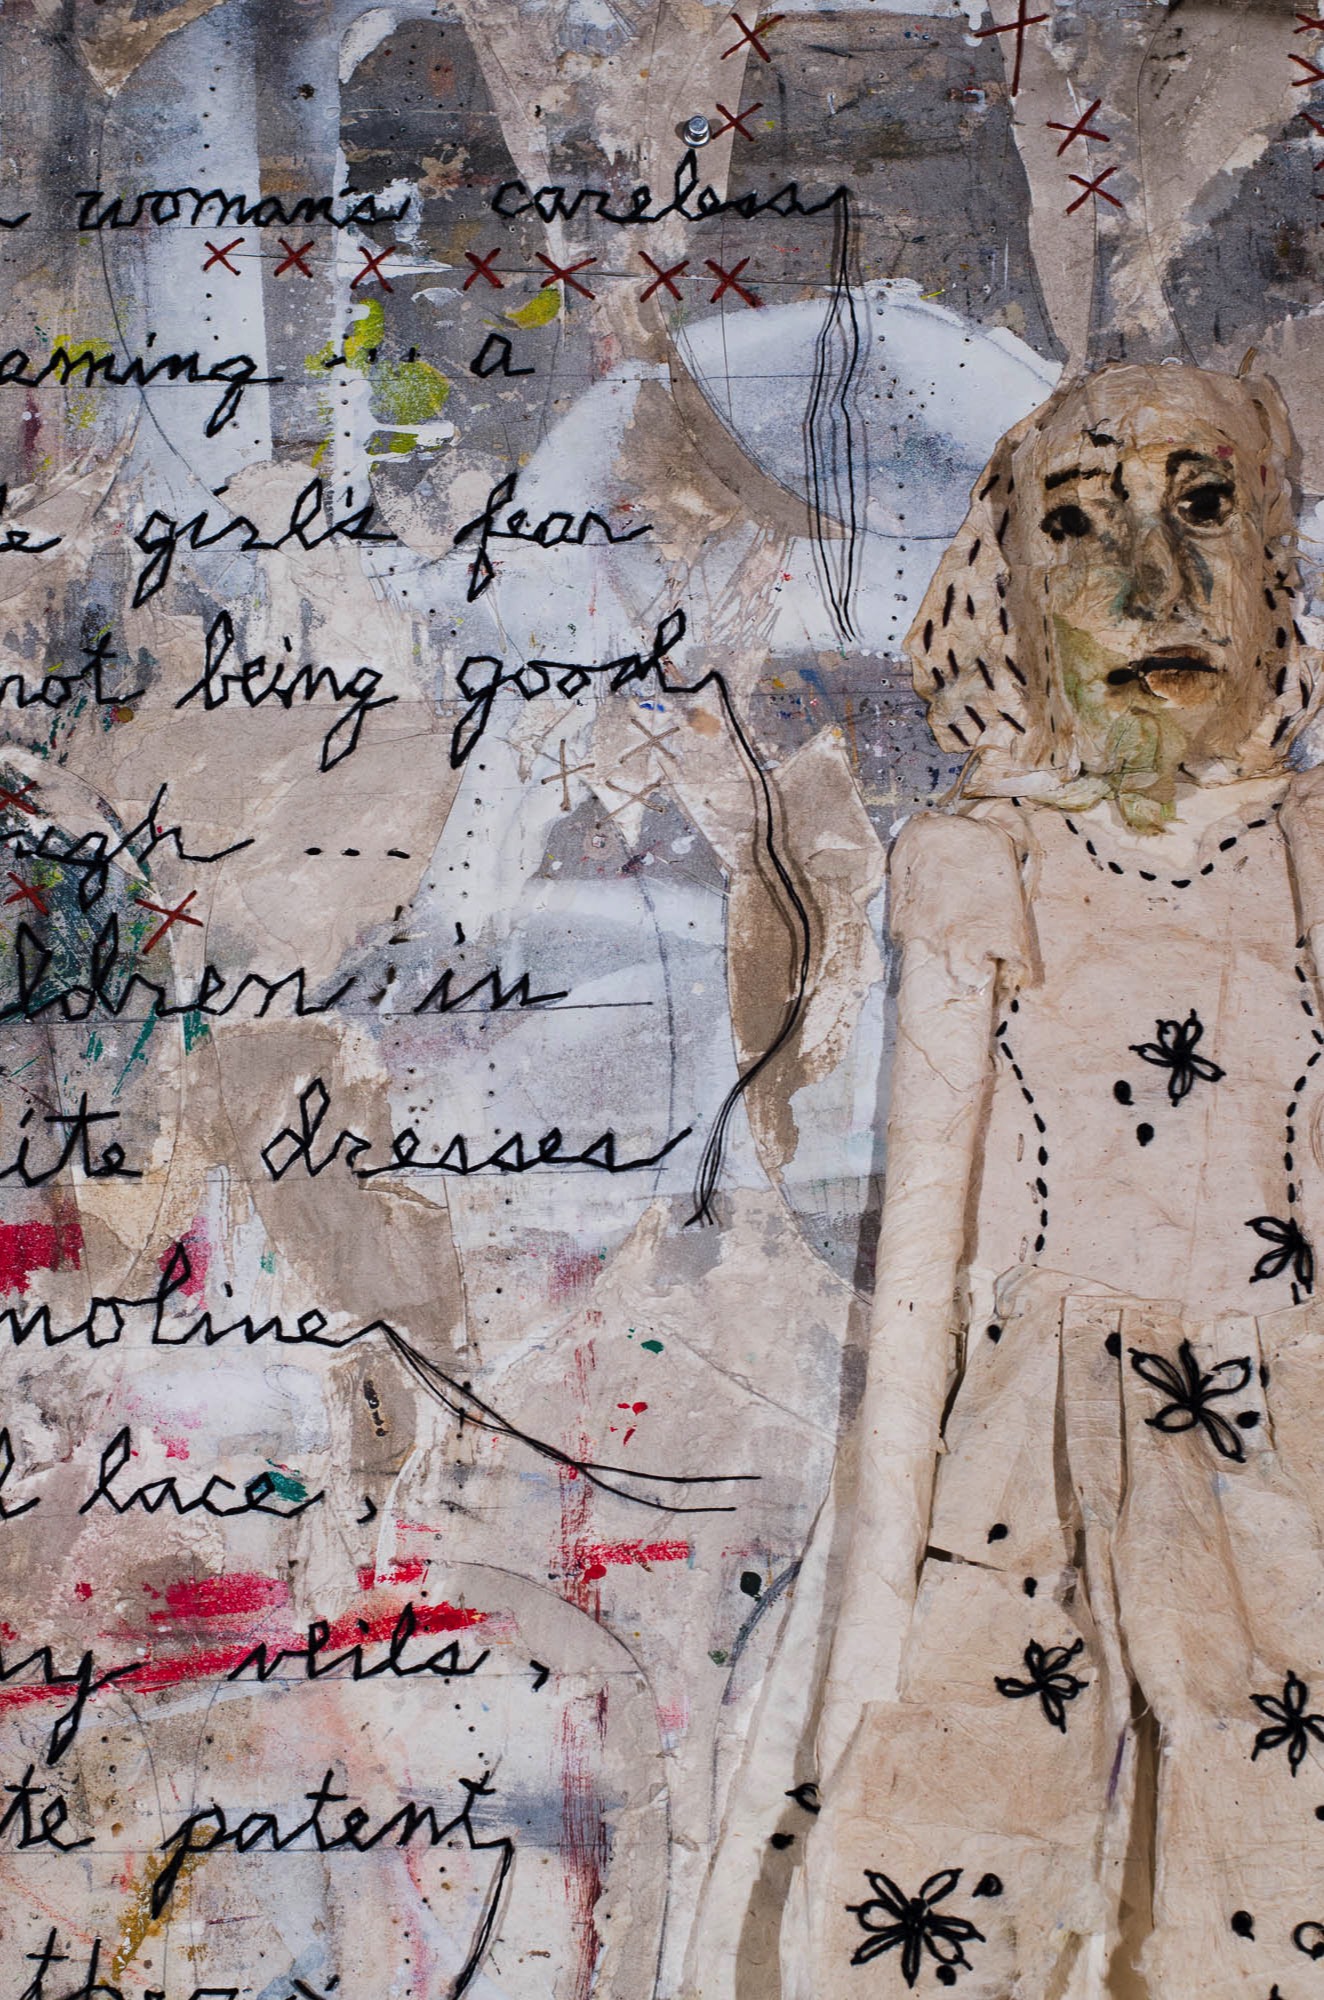 woman's careless
aming ... a
e girl's fear
not being good
ugh ...
ldren in
ite dresses
noline
lace,
ny veils,
te patent